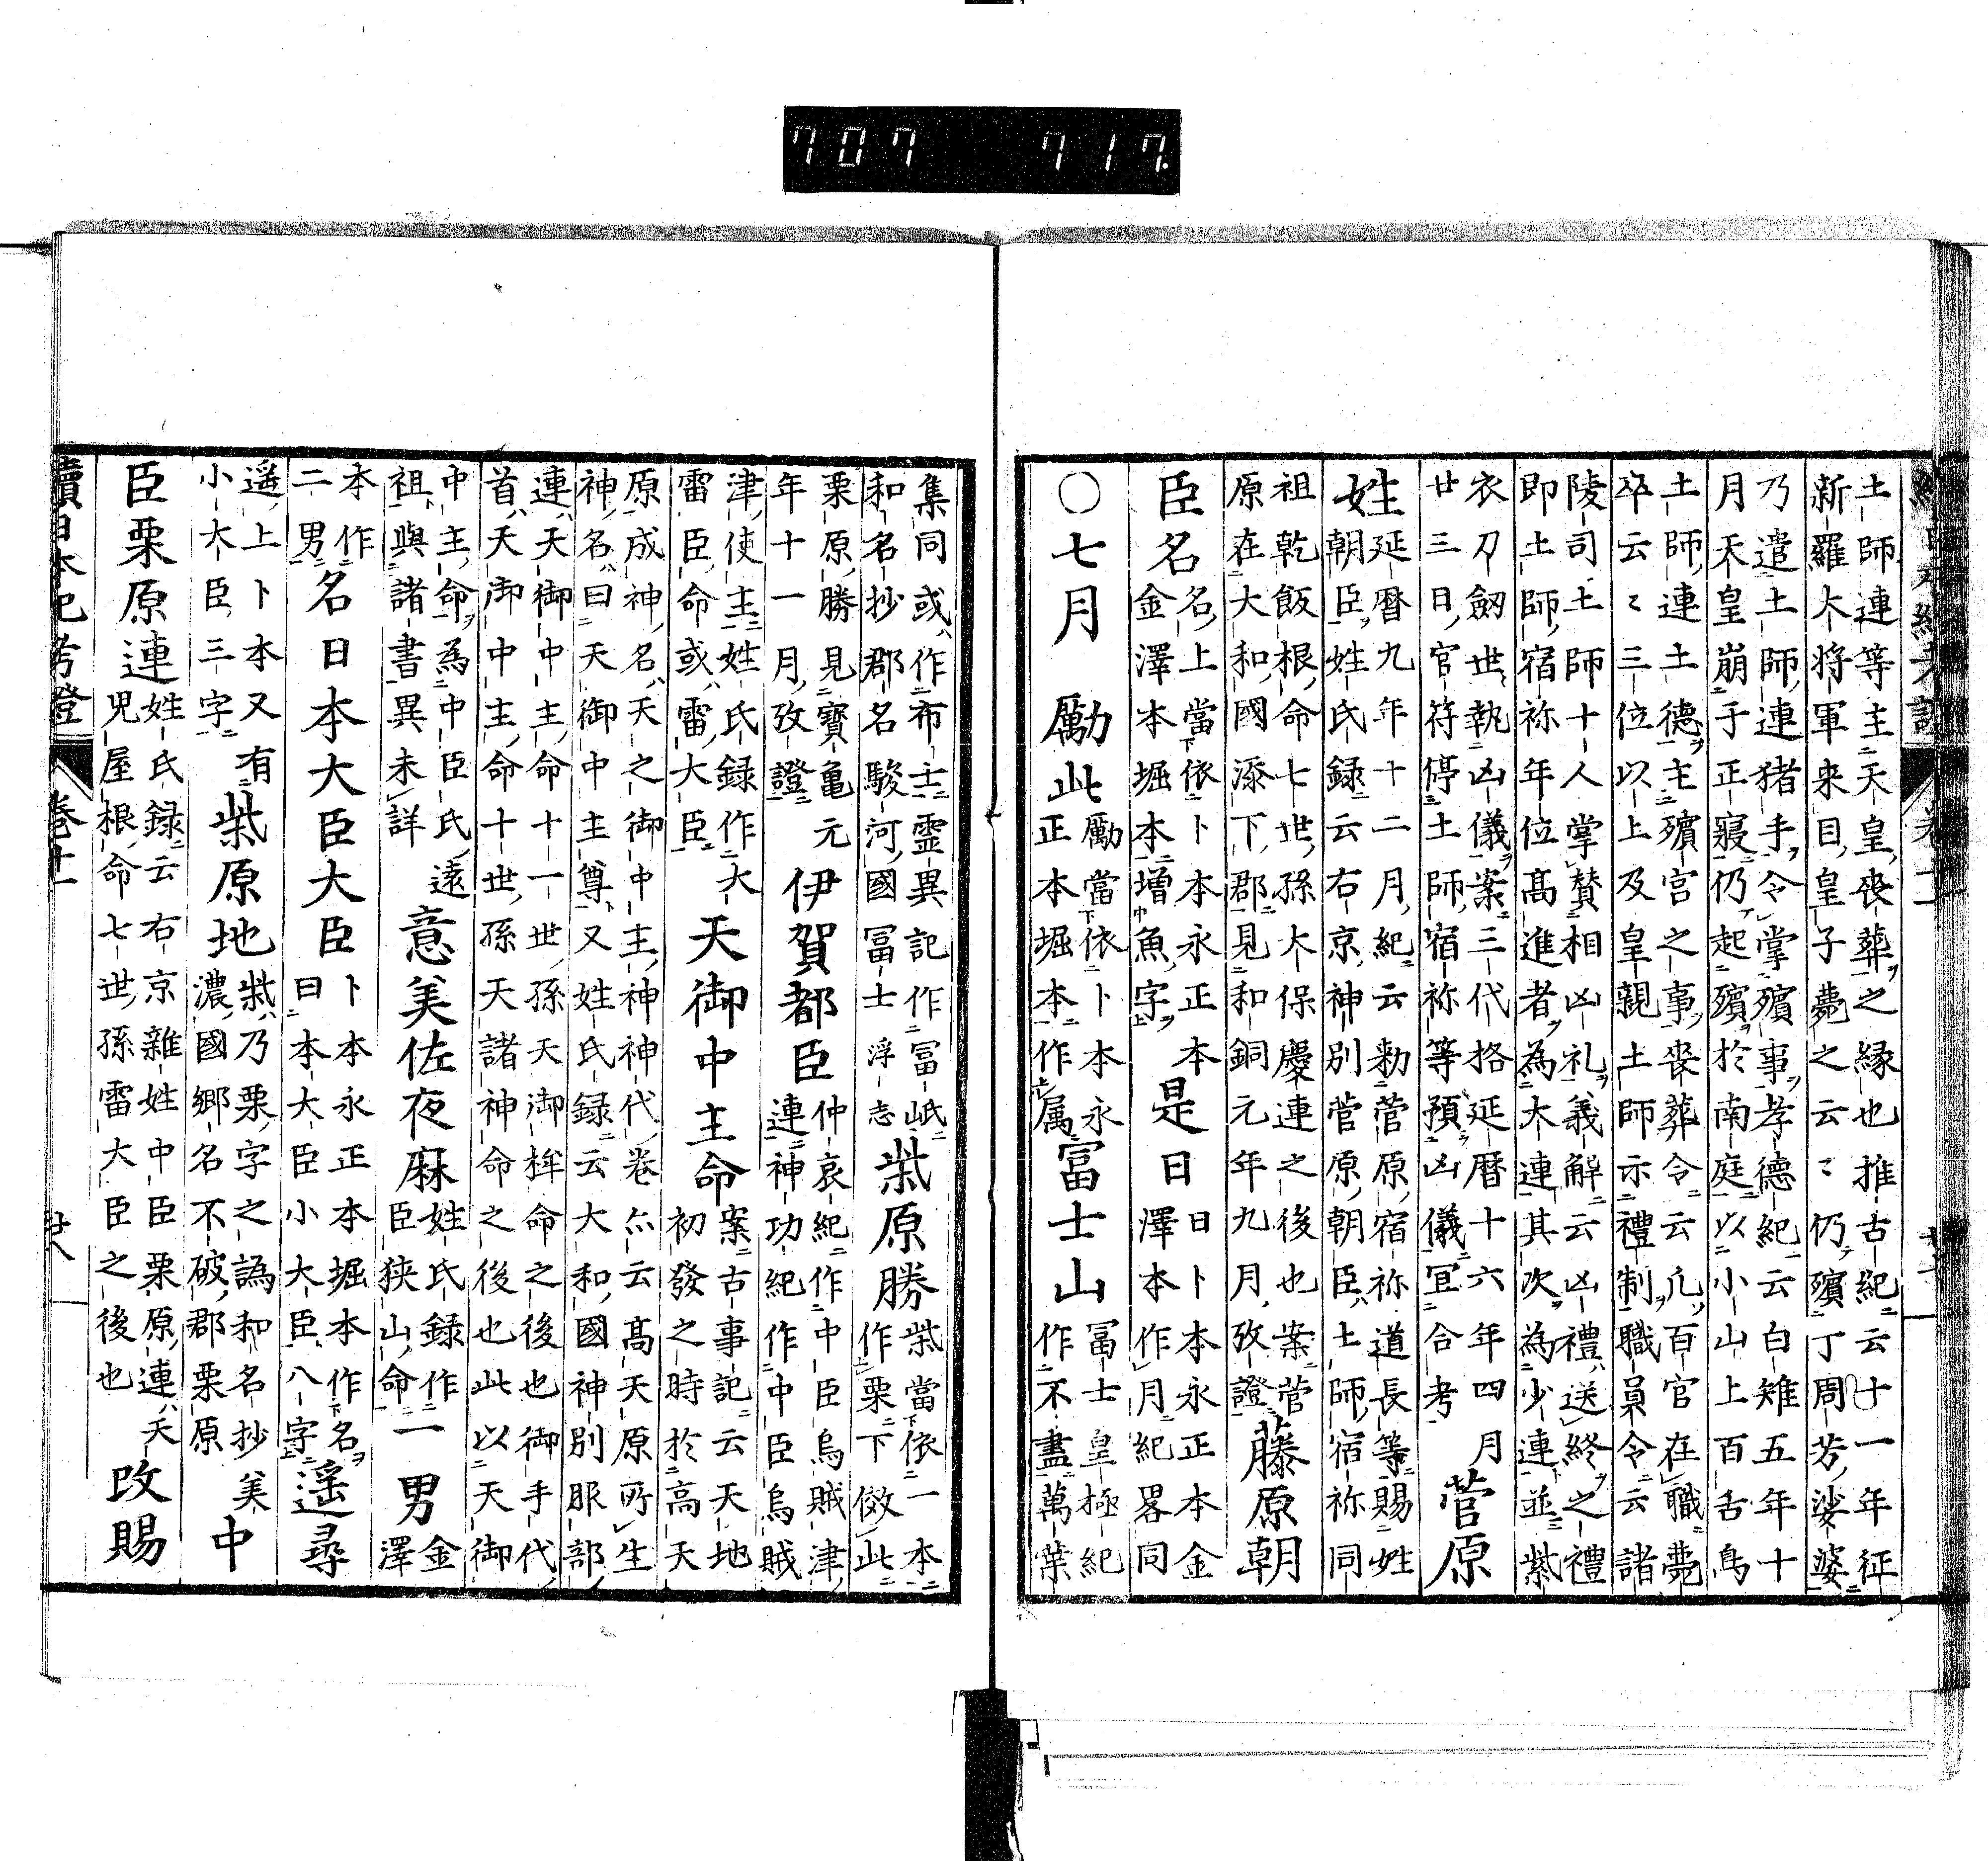 707 717.
土師連等主天皇喪葬之縁也推古紀云十一年征
新羅大将軍来目皇子薨之云〻仍殯丁周芳娑婆
乃遣土師連猪手令掌殯事孝德紀云白雉五年十
月天皇崩于正寢仍起殯於南庭以小山上百舌鳥
土師連土德主殯宮之事喪葬令云凢百官在職薨
卒云〻三位以上及皇親土師示禮制職員令云諸
陵司土師十人掌賛相凶礼義解云凶禮送終之禮
即土師宿祢年位髙進者為大連其次為少連並紫
衣刀劔世執凶儀案三代格延暦十六年四月
廿三日官符停土師宿祢等預凶儀冝合考
菅原
姓
延暦九年十二月紀云勅菅原宿祢道長等賜姓
朝臣姓氏録云右京神別菅原朝臣土師宿祢同
祖乾飯根命七世孫大保慶連之後也案菅
原在大和國添下郡見和銅元年九月攷證
藤原朝
臣名
名上當依卜本永正本金
金澤本堀本增魚字
是日
日卜本永正本金
澤本作月紀畧同
〇七月
勵此
勵當依卜本永
正本堀本作属
冨士山
冨士皇極紀
作不盡萬葉
集同或作布士靈異記作冨岻
和名抄郡名駿河國冨士浮志
柴原勝
柴當依一本
作栗下傚此
栗原勝見寶龜元
年十一月攷證
伊賀都臣
仲哀紀作中臣烏賊津
連神功紀作中臣烏賊
津使主姓氏録作大
雷臣命或雷大臣
天御中主命
案古事記云天地
初發之時於高天
原成神名天之御中主神神代卷亦云髙天原所生
神名曰天御中主尊又姓氏録云大和國神別服部
連天御中主命十一世孫天御桙命之後也御手代
首天御中主命十世孫天諸神命之後也此以天御
中主命為中臣氏遠
祖與諸書異未詳
意美佐夜麻
姓氏録作
臣狹山命
一男
金
澤
本作
二男
名日本大臣大臣
卜本永正本堀本作名
曰本大臣小大臣八字
遥尋
遥上卜本又有
小大臣三字
柴原地
柴乃栗字之譌和名抄美
濃國郷名不破郡栗原
中
臣栗原連
姓氏録云右京雜姓中臣栗原連天
兒屋根命七世孫雷大臣之後也
改賜
續日本紀考證
卷十一
廿八